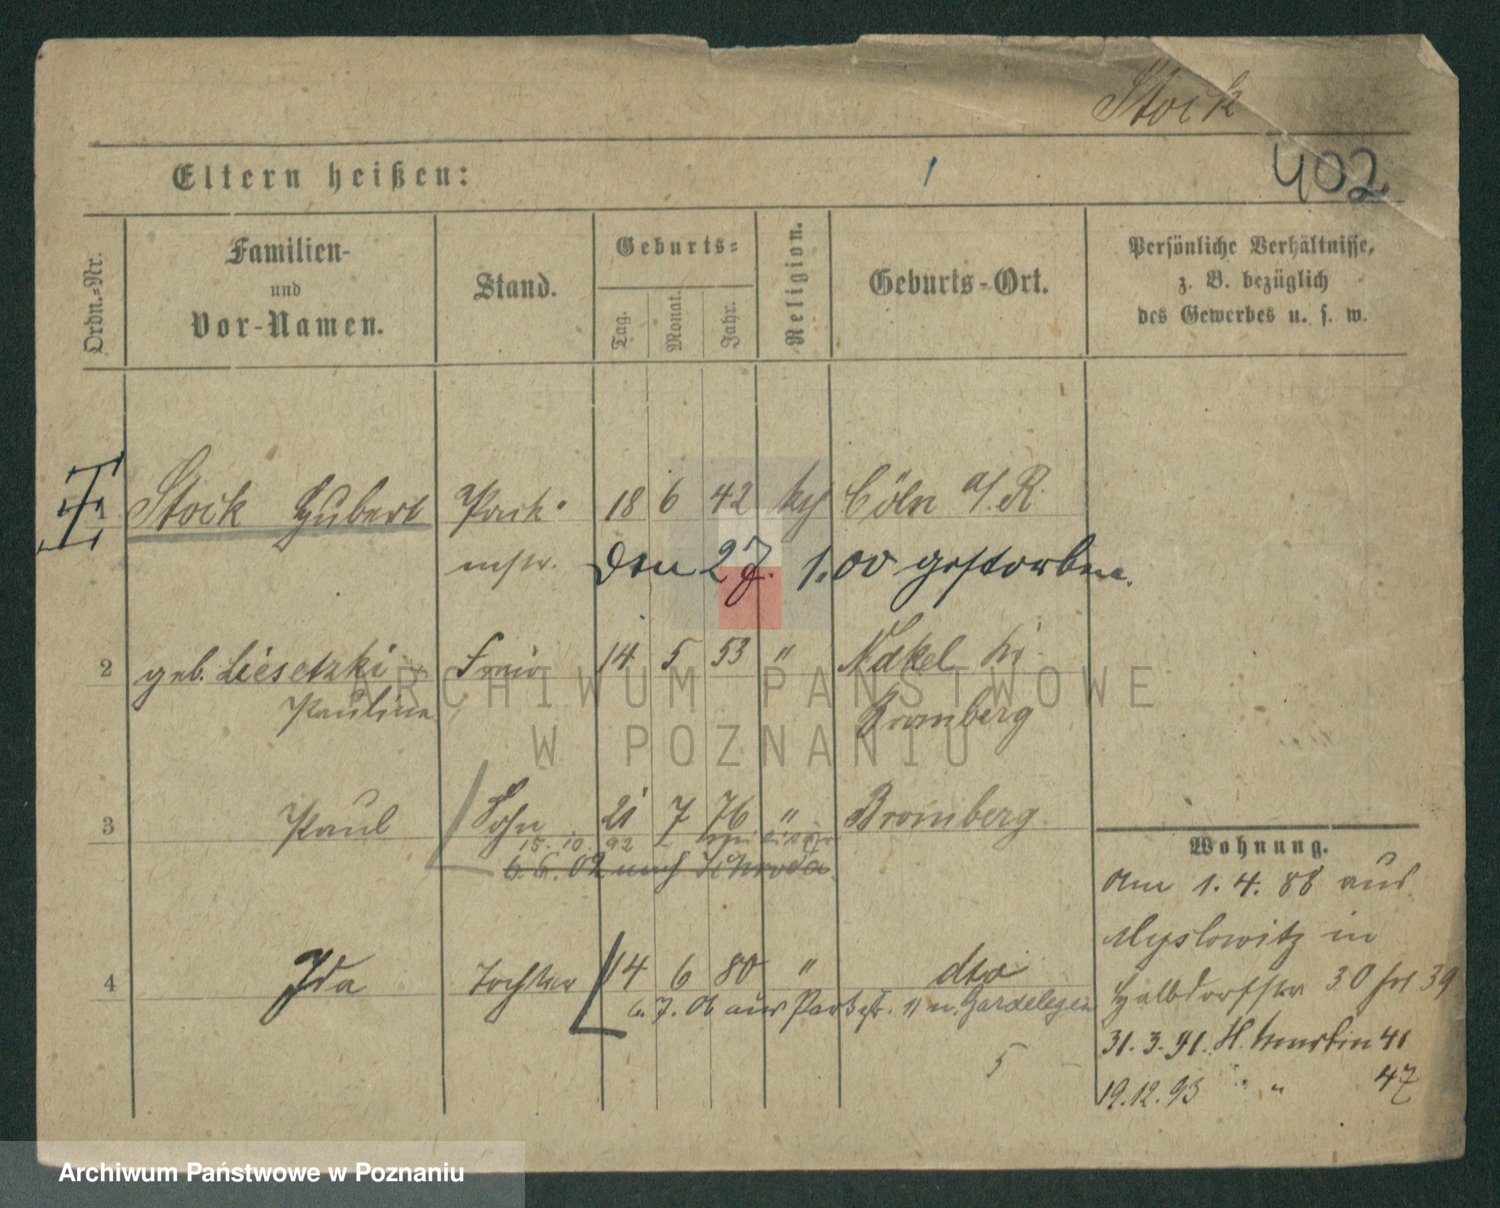 Stock
402
Eltern heißen:
1
Ordn.-Nr.
Familien-
und
Vor-Namen.
Stand.
Geburts-
Tag.
Monat.
Jahr.
Religion.
Geburts-Ort.
Persönliche Verhältnisse,
z. B. bezüglich
des Gewerbes u. s. w.
1 Stock Hubert Pack- 18 6 42 kth Cöln a/R.
mstr. den 27. 1.00 gestorben.
2 geb. Liesetzki Frau 14 5 53 " Nakel Kr.
Pauline Bromberg
3 Paul Sohn 21 7 76 " Bromberg
15. 10. 92
6.6.02 nach Schroda
4 Ida Tochter 14 6 80 " dto
6.7.06 aus Parkstr. 11 n. Gardelegen
5
Wohnung.
Am 1.4.88 aus
Myslowitz in
Halbdorfstr 30 39
31.3.91. St. Martin 41
19.12.93 " " 47
ARCHIWUM PAŃSTWOWE
W POZNANIU
Archiwum Państwowe w Poznaniu